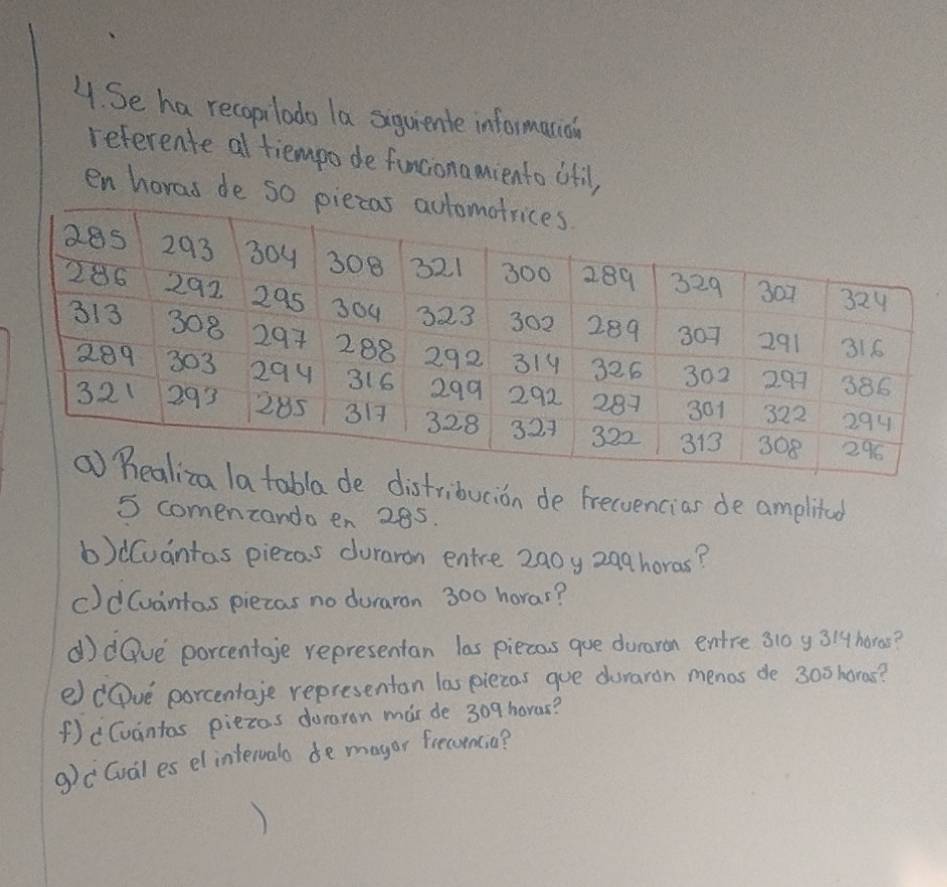 4. Se ha recopilado la siguiente información
referente al tiempo de funcionamiento útil,
en horas de 50 piezas automotrices.
285 293 304 308 321 300 289 329 307 324
286 292 295 304 323 302 289 307 291 316
313 308 297 288 292 314 326 302 297 386
289 303 294 316 299 292 287 301 322 294
321 293 285 317 328 327 322 313 308 296
a) Realiza la tabla de distribución de frecuencias de amplitud
5 comenzando en 285.
b) ¿Cuántas piezas duraron entre 290 y 299 horas?
c) ¿Cuántas piezas no duraron 300 horas?
d) ¿Qué porcentaje representan las piezas que duraron entre 310 y 314 horas?
e) ¿Qué porcentaje representan las piezas que duraron menos de 305 horas?
f) ¿Cuántas piezas duraron más de 309 horas?
g) ¿Cuál es el intervalo de mayor frecuencia?